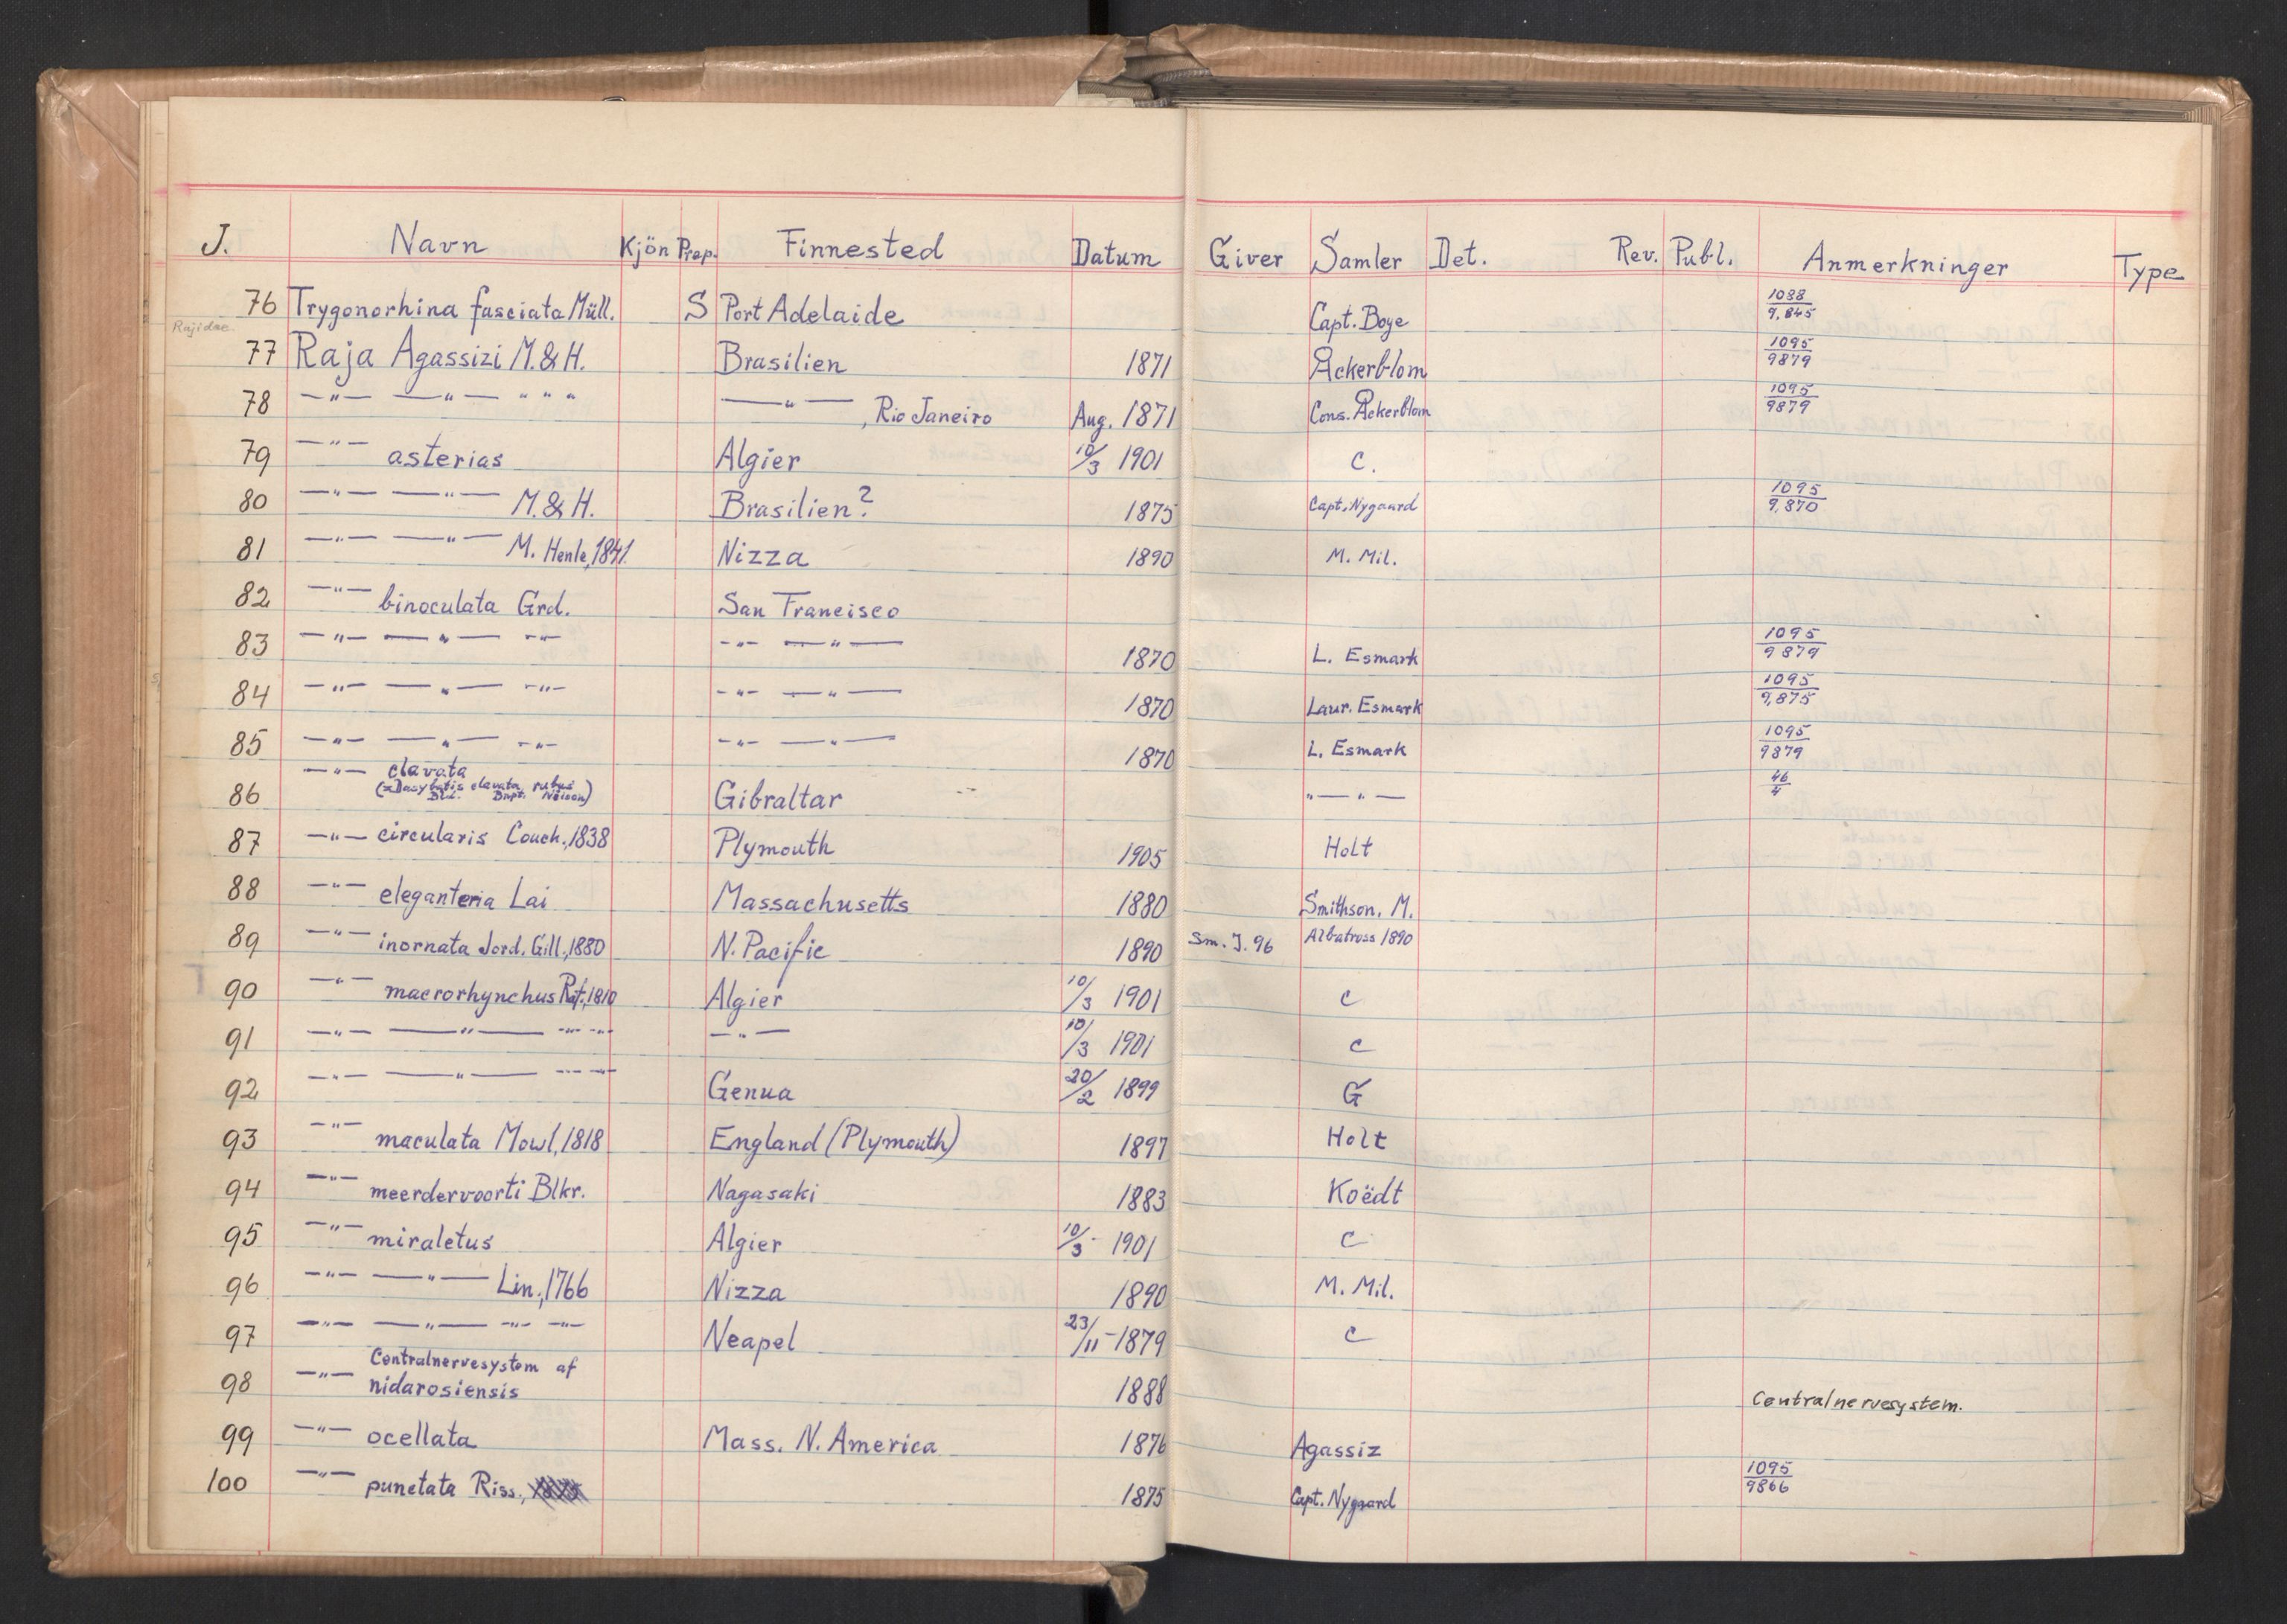 J. Navn Kjön Prep. Finnested Datum Giver Samler Det. Rev. Publ. Anmerkninger Type
76 Trygonorhina fasciata Müll. S Port Adelaide Capt. Boye 1088/9,845
Rajidae
77 Raja Agassizi M. & H. Brasilien 1871 Åckerblom 1095/9879
78 —"— —"— " " " —"—, Rio Janeiro Aug. 1871 Cons. Åckerblom 1095/9879
79 —"— asterias Algier 10/3 1901 C.
80 —"— —"— M. & H. Brasilien? 1875 Capt. Nygaard 1095/9,870
81 —"— —"— M. Henle, 1841. Nizza 1890 M. Mil.
82 —"— binoculata Grd. San Francisco
83 —"— —"— -"- -"- —"— 1870 L. Esmark 1095/9879
84 —"— —"— -"- -"- —"— 1870 Laur. Esmark 1095/9,875
85 —"— —"— -"- -"- —"— 1870 L. Esmark 1095/9879
86 —"— clavata Gibraltar "— " — 46/4
(=Dasybatis clavata, rubus
Bld. Bnpt. Nilson)
87 —"— circularis Couch., 1838 Plymouth 1905 Holt
88 —"— eleganteria Lai Massachusetts 1880 Smithson. M.
89 —"— inornata Jord. Gill., 1880 N. Pacific 1890 Sm. J. 96 Albatross 1890
90 —"— macrorhynchus Raf., 1810 Algier 10/3 1901 C
91 —"— —"— -"- -"- —"— 10/3 1901 C
92 —"— —"— -"- -"- Genua 20/2 1899 G
93 —"— maculata Mowl, 1818 England (Plymouth) 1897 Holt
94 —"— meerdervoorti Blkr. Nagasaki 1883 Koëdt
95 —"— miraletus Algier 10/3 - 1901 C
96 —"— —"— Lin., 1766 Nizza 1890 M. Mil.
97 —"— —"— -"- -"- Neapel 23/11 - 1879 C
98 —"— Centralnervesystem af
nidarosiensis 1888 Centralnervesystem.
99 —"— ocellata Mass. N. America 1876 Agassiz
100 —"— punctata Riss., 1875 Capt. Nygaard 1095/9866